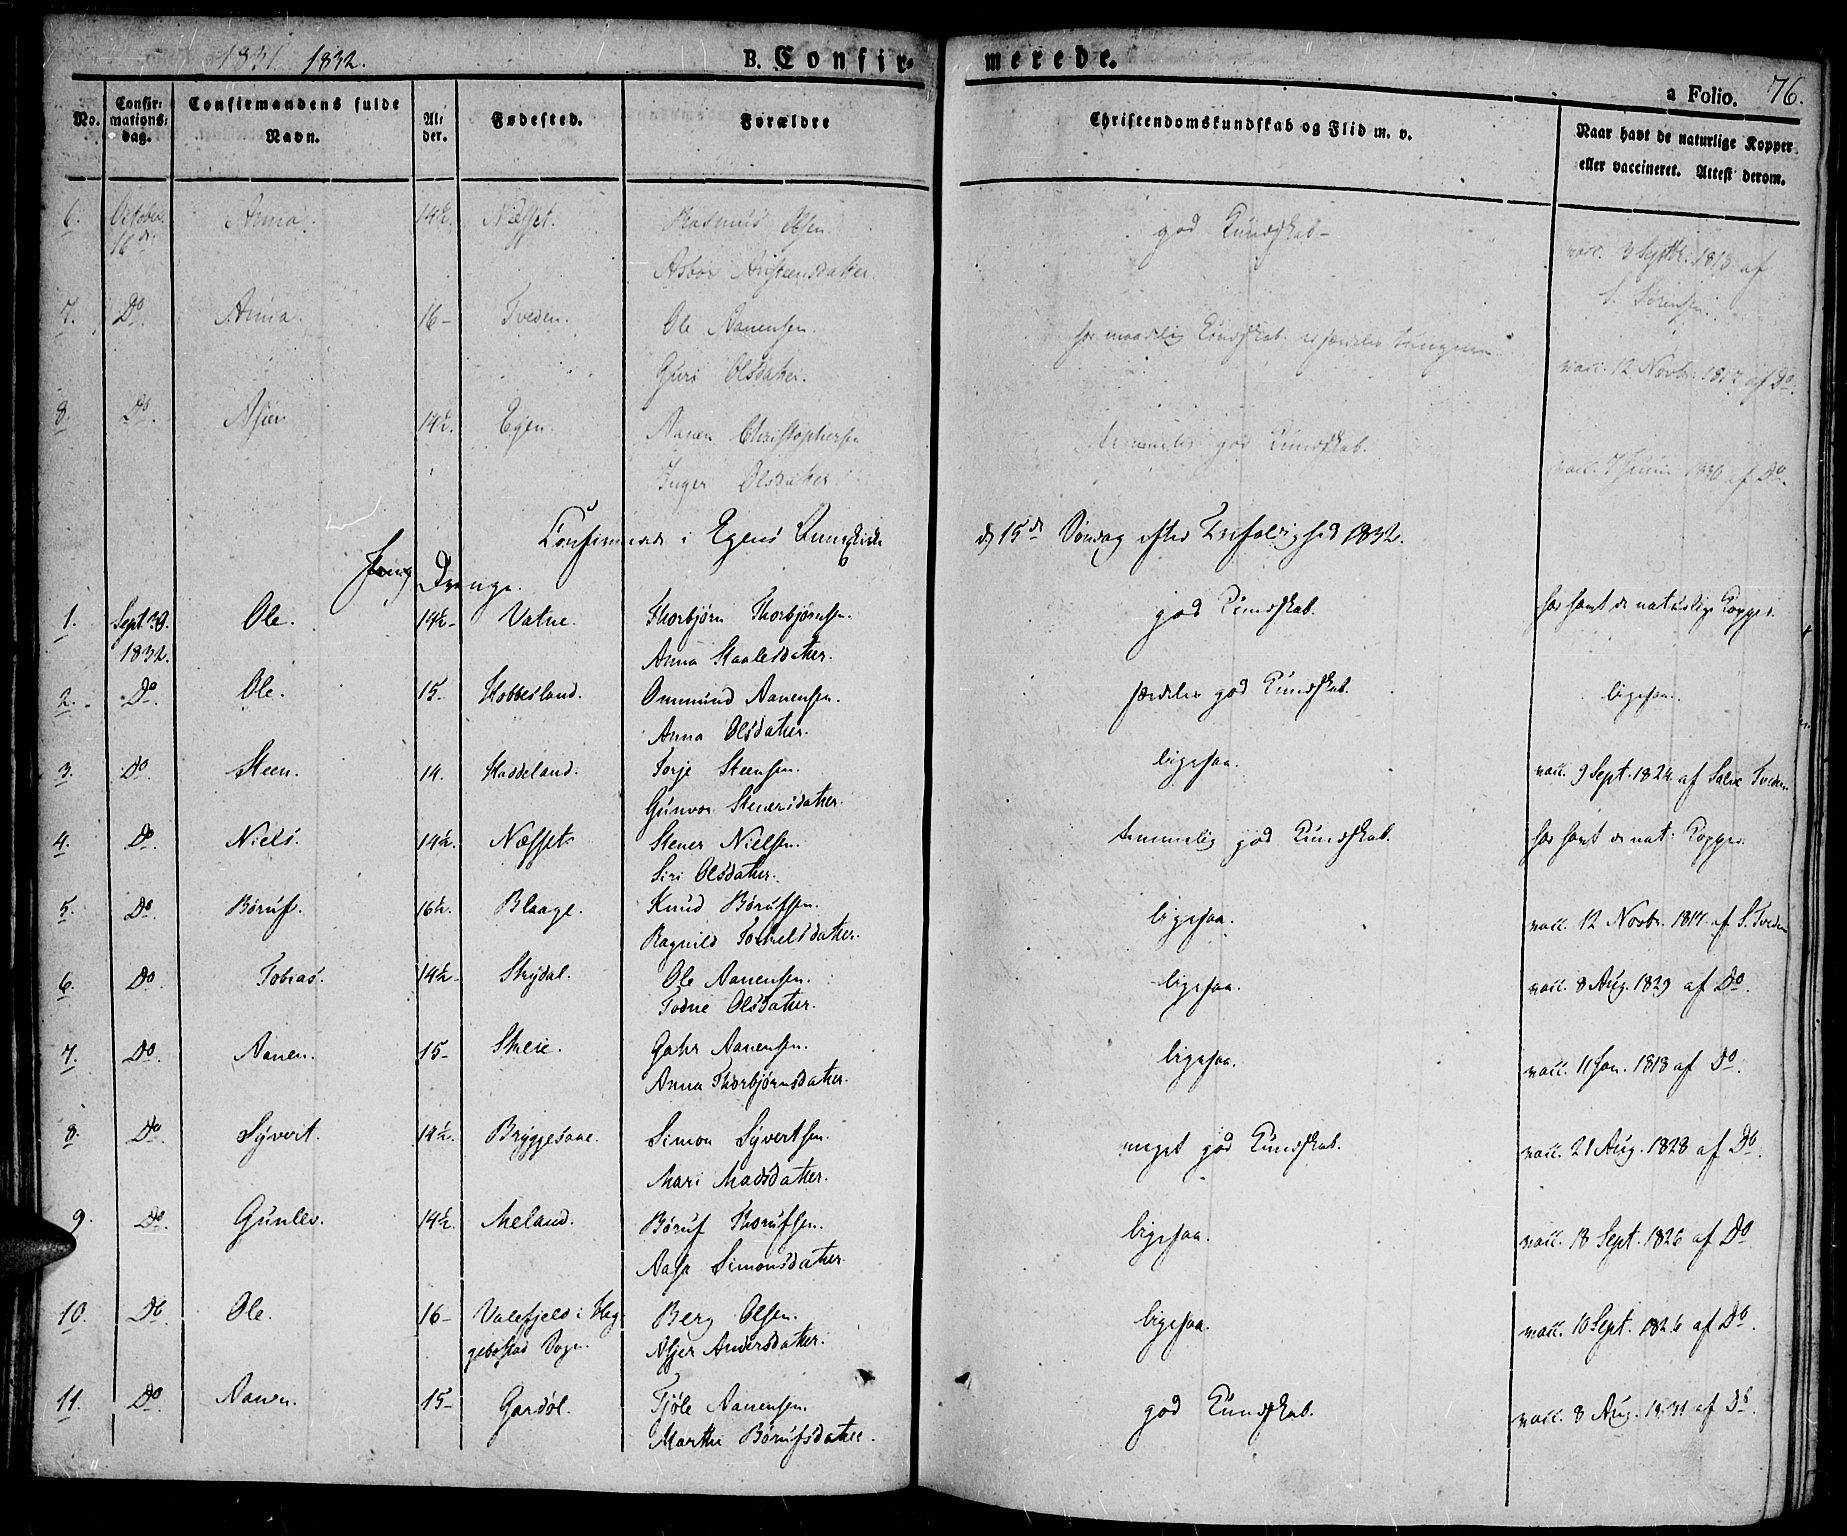 1831 1832.
B. Confirmerede.
a Folio. 76.
No.
Confirmations-dag.
Confirmandens fulde Navn.
Alder.
Fødested.
Forældre
Christendomskundskab og Flid m. v.
Naar havt de naturlige Kopper eller vaccineret. Attest derom.
6. October 16de Anna. 14½ Næsset. Rasmus Olsen god Kundskab- vacc. 3 Septbr. 1818 af
Asbor S. Sörensen.
7. Do. Anna. 16- Tveden. Ole Aanensen. Kundskab vacc. 12 Novbr. 1817 af Do.
Guri Olsdatter.
8. Do. Asjer 14½. Egen. Aanen Christophersen temmelig god Kundskab. vacc. 7 Juni 1830 af Do.
Inger Olsdatter
Confirmerede i Egens Annexkirke d 15de Söndag efter Trefoldighed 1832.
Drenge.
1. Sept. 30. Ole. 14½- Vatne. Thorbjörn Thorbjörnsen. god Kundskab. har havt de naturlige Kopper.
1832. Anna Staalesdatter.
2. Do. Ole. 15- Hobbesland. Ommund Aanensen. særdeles god Kundskab. ligesaa.
Anna Olsdatter.
3. Do. Steen. 14. Haddeland. Torje Steensen. ligesaa. vacc. 9 Sept. 1824 af Salve Tveden
Gunvor Stenersdatter.
4. Do. Niels. 14½. Næsset. Stener Nielsen. temmelig god Kundskab. har havt de nat: Kopper.
Siri Olsdatter.
5. Do. Böruf. 16½. Blaage. Knud Börufsen. ligesaa. vacc. 12 Novbr. 1817 af S. Tveden
Ragnild Torkelsdatter.
6. Do. Tobias. 14½- Skejdal. Ole Aanensen. ligesaa. vacc. 8 Aug. 1829 af Do.
Todne Olsdatter.
7. Do. Aanen. 15- Skeie. Gahr Aanensen. ligesaa. vacc. 11 Jan. 1818 af Do.
Anna Thorbjörnsdatter.
8. Do. Syvert. 14½. Bryggesaae. Simon Syvertsen. meget god Kundskab. vacc. 21 Aug. 1828 af Do.
Mari Madsdatter.
9. Do. Gunles. 14½. Meland. Böruf Thorufsen. ligesaa. vacc. 18 Sept. 1826 af Do.
Aase Simonsdatter.
10. Do. Ole. 16- Valefjeld i Heg- Berg Olsen. ligesaa. vacc. 10 Sept. 1826 af Do.
gebostad Sogn. Asjer Andersdatter.
11. Do. Aanen. 15- Gardöl. Tjöle Aanensen. god Kundskab. vacc. 8 Aug. 1831 af Do.
Marthe Börufsdatter.